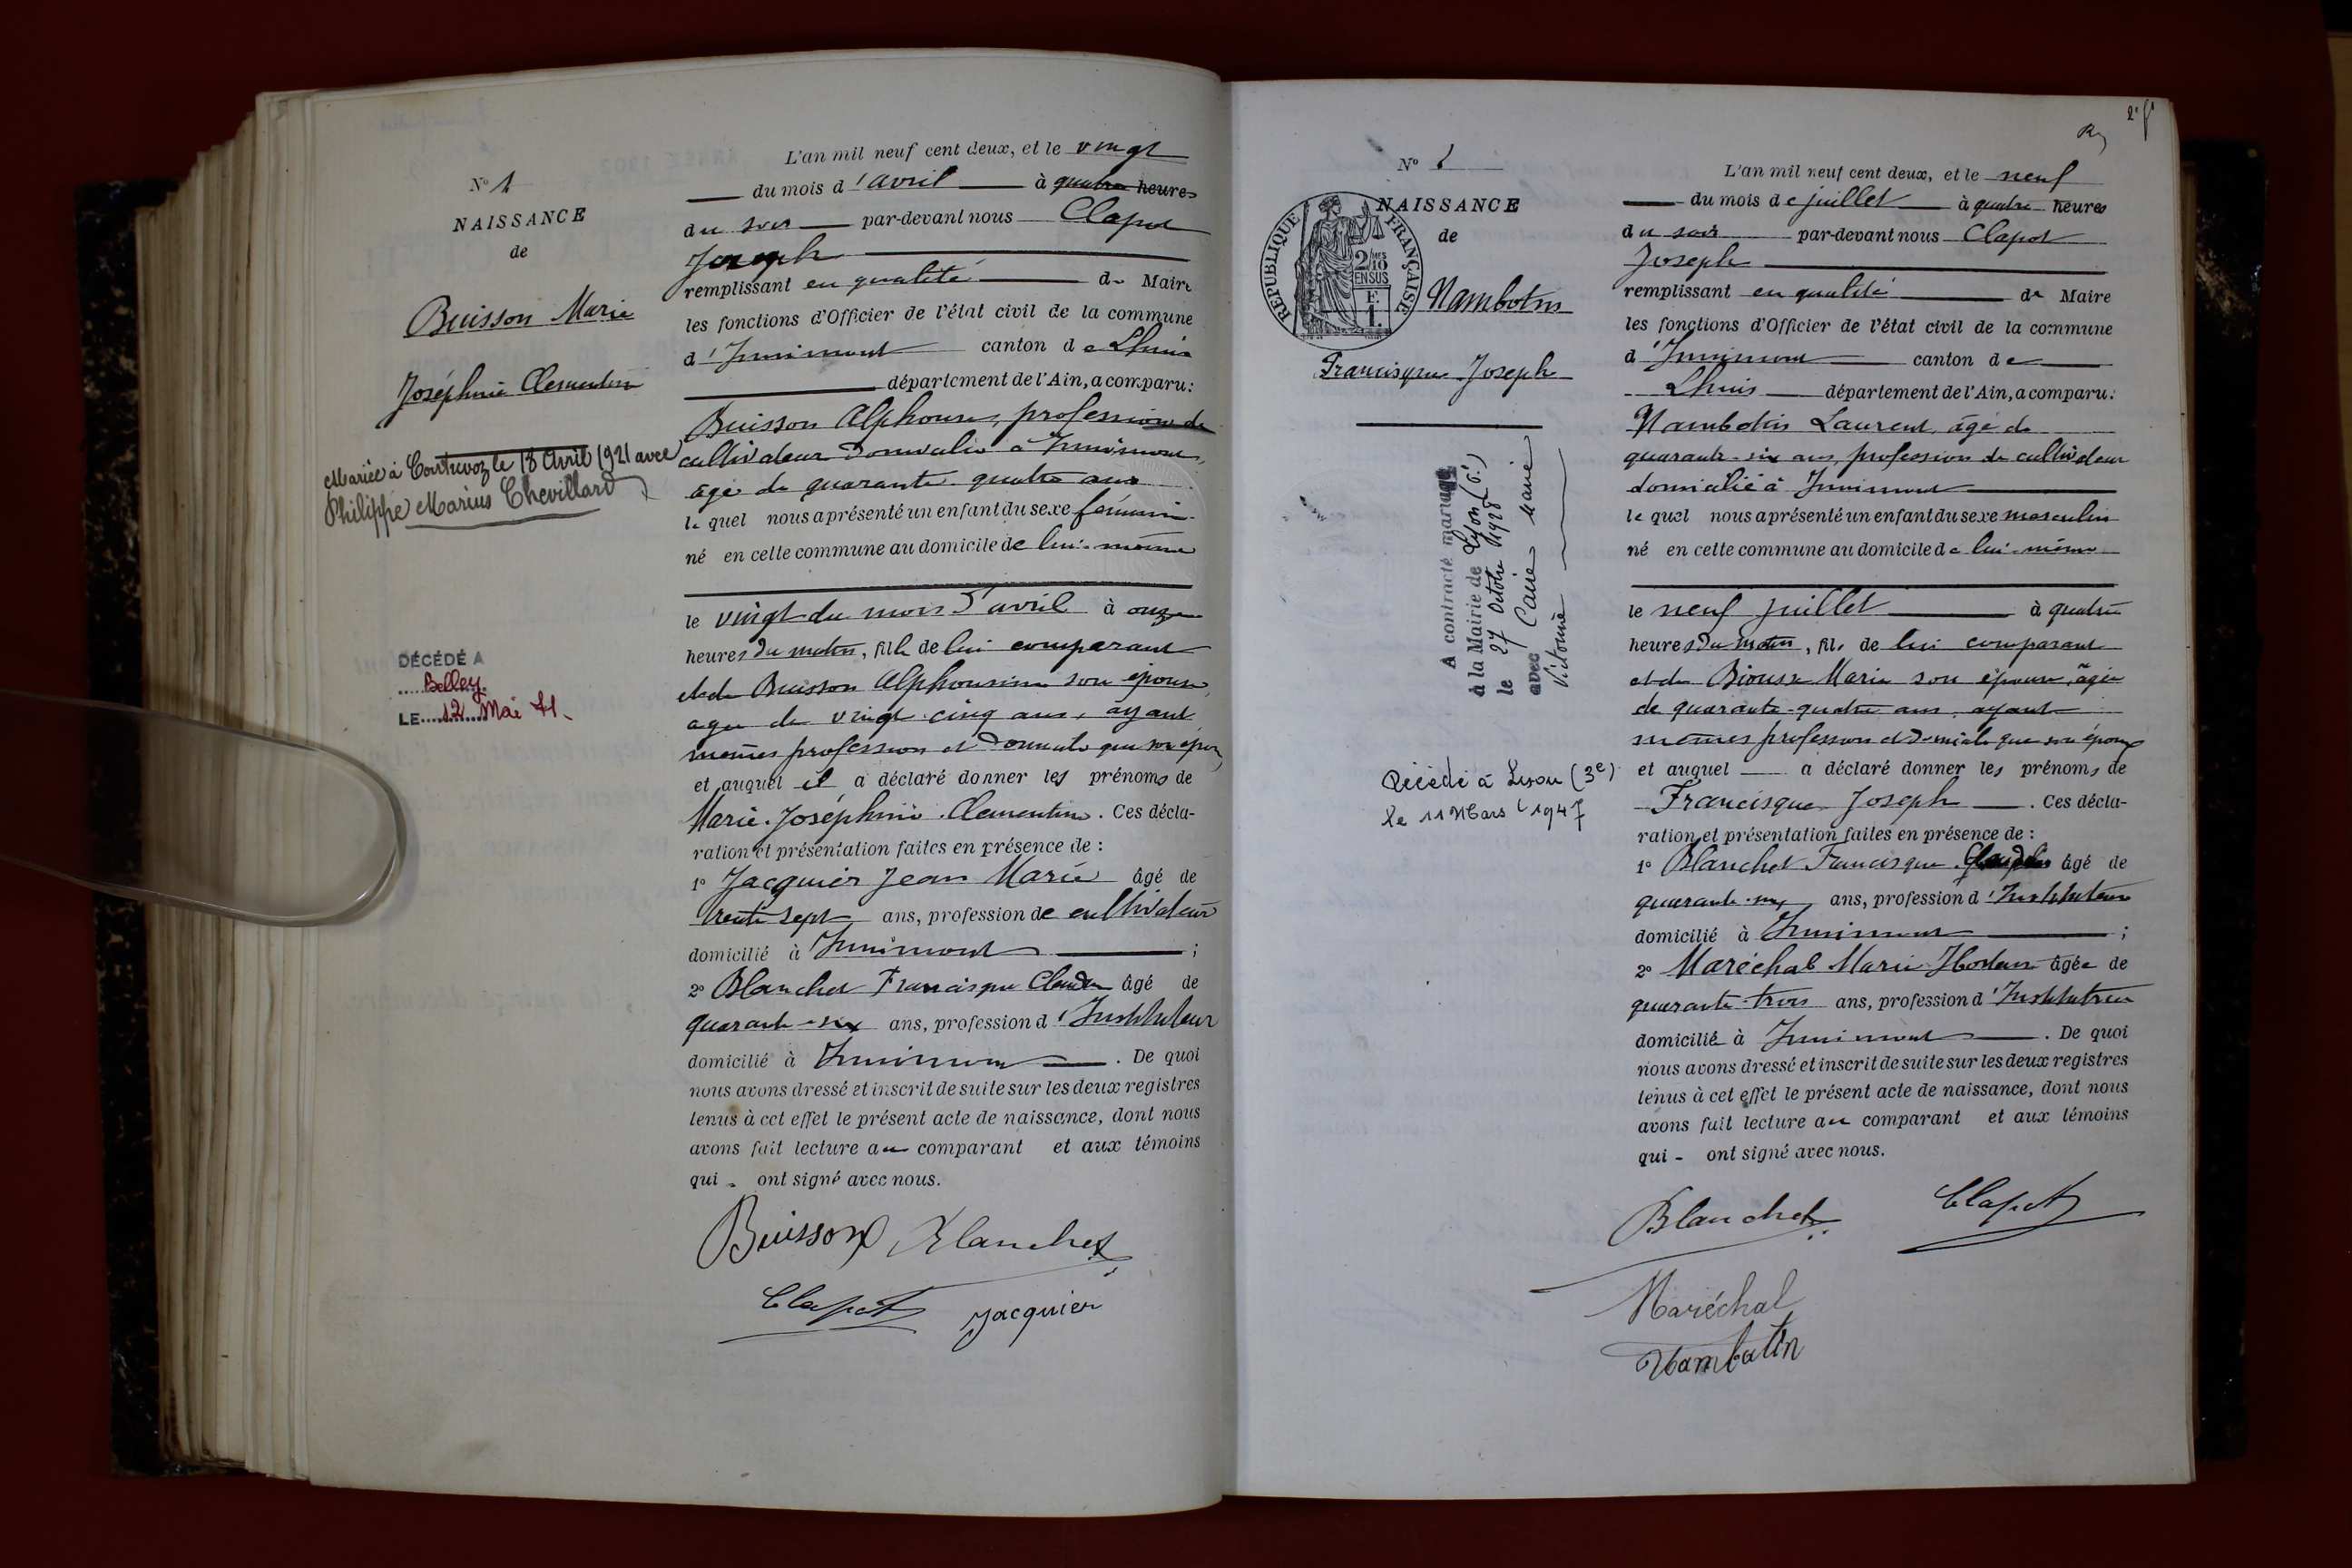 N° 1
NAISSANCE
de
Buisson Marie
Joséphine Clementine
Mariée à Contrevoz le 18 Avril 1921 avec
Philippe Marius Chevillard
DÉCÉDÉ A
Belley
LE 12 Mai 71.
L'an mil neuf cent deux, et le vingt
du mois d'avril à quatre heures
du soir par-devant nous Clapot
Joseph
remplissant en qualité de Maire
les fonctions d'Officier de l'état civil de la commune
d'Innimont canton de Lhuis
département de l'Ain, a comparu:
Buisson Alphonse, profession de
cultivateur domicilié à Innimont,
âgé de quarante quatre ans
le quel nous a présenté un enfant du sexe féminin
né en cette commune au domicile de lui-même
le vingt du mois d'avril à onze
heures du matin, fille de lui comparant
et de Buisson Alphonsine son épouse,
agée de vingt-cinq ans, ayant
mêmes profession et domicile que son époux
et auquel il a déclaré donner les prénoms de
Marie Joséphine Clementine. Ces décla-
ration et présentation faites en présence de :
1° Jacquier Jean Marie âgé de
trente sept ans, profession de cultivateur
domicilié à Innimont ;
2° Blanchet Francisque Claude âgé de
quarante-six ans, profession d'Instituteur
domicilié à Innimont. De quoi
nous avons dressé et inscrit de suite sur les deux registres
tenus à cet effet le présent acte de naissance, dont nous
avons fait lecture au comparant et aux témoins
qui - ont signé avec nous.
Buisson Blanchet
Clapot Jacquier
2e f
N° 2
NAISSANCE
de
RÉPUBLIQUE FRANÇAISE
2/10 MES
EN SUS
F.
1.
Nambotin
Francisque Joseph
A contracté mariage
à la Mairie de Lyon (6e)
le 27 Octobre 1928
avec Caire Marie
Victorine
Décédé à Lyon (3e)
le 11 Mars 1947
L'an mil neuf cent deux, et le neuf
du mois de juillet à quatre heures
du soir par-devant nous Clapot
Joseph
remplissant en qualité de Maire
les fonctions d'Officier de l'état civil de la commune
d'Innimont canton de
Lhuis département de l'Ain, a comparu:
Nambotin Laurent, âgé de
quarante-six ans, profession de cultivateur
domicilié à Innimont
le quel nous a présenté un enfant du sexe masculin
né en cette commune au domicile de lui-même
le neuf juillet à quatre
heures du matin, fils de lui comparant
et de Marie son épouse, âgée
de quarante-quatre ans, ayant
mêmes profession et domicile que son époux
et auquel a déclaré donner les prénoms de
Francisque Joseph. Ces décla-
ration et présentation faites en présence de :
1° Blanchet Francisque Claude âgé de
quarante-six ans, profession d'Instituteur
domicilié à Innimont ;
2° Maréchal Marie âgée de
quarante-trois ans, profession d'Institutrice
domicilié à Innimont. De quoi
nous avons dressé et inscrit de suite sur les deux registres
tenus à cet effet le présent acte de naissance, dont nous
avons fait lecture au comparant et aux témoins
qui - ont signé avec nous.
Blanchet Clapot
Maréchal
Nambotin